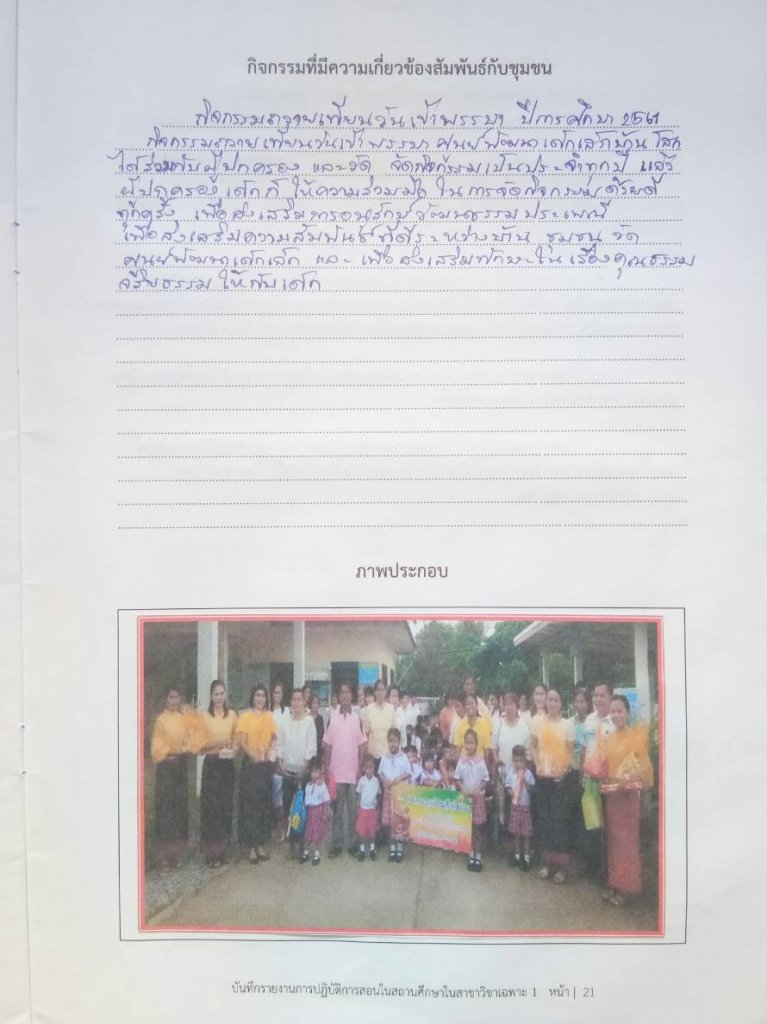 กิจกรรมที่มีความเกี่ยวข้องสัมพันธ์กับชุมชน
กิจกรรมถวายเทียนวันเข้าพรรษา ปีการศึกษา 2561
กิจกรรมถวายเทียนวันเข้าพรรษา ศูนย์พัฒนาเด็กเล็กบ้าน
ได้ร่วมกับผู้ปกครอง และวัด จัดกิจกรรมเป็นประจำทุกปี แล้ว
ผู้ปกครองเด็กก็ ให้ความร่วมมือ ในการจัดกิจกรรมด้วยดี
ทุกครั้ง เพื่อส่งเสริมการอนุรักษ์วัฒนธรรมประเพณี
เพื่อส่งเสริมความสัมพันธ์ที่ดีระหว่างบ้าน ชุมชน วัด
ศูนย์พัฒนาเด็กเล็ก และ เพื่อส่งเสริมทักษะในเรื่องคุณธรรม
จริยธรรม ให้กับเด็ก
ภาพประกอบ
บันทึกรายงานการปฏิบัติการสอนในสถานศึกษาในสาขาวิชาเฉพาะ 1 หน้า | 21